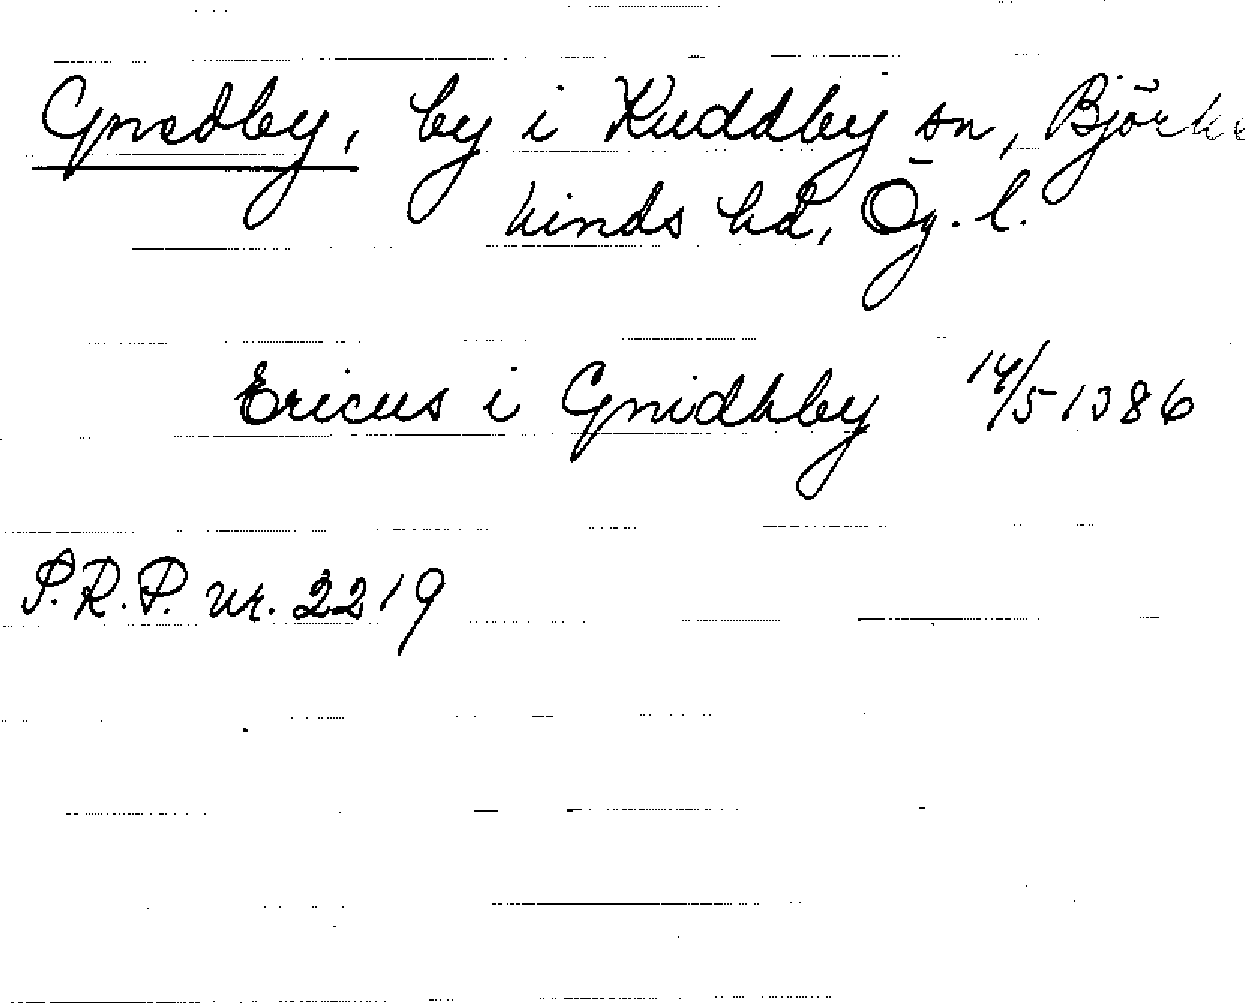 Gnedby, by i Kuddby sn, Björke
kinds hd, Ög. l.
Ericus i Gnidhby 14/5 1386
P.R.P. nr. 2219